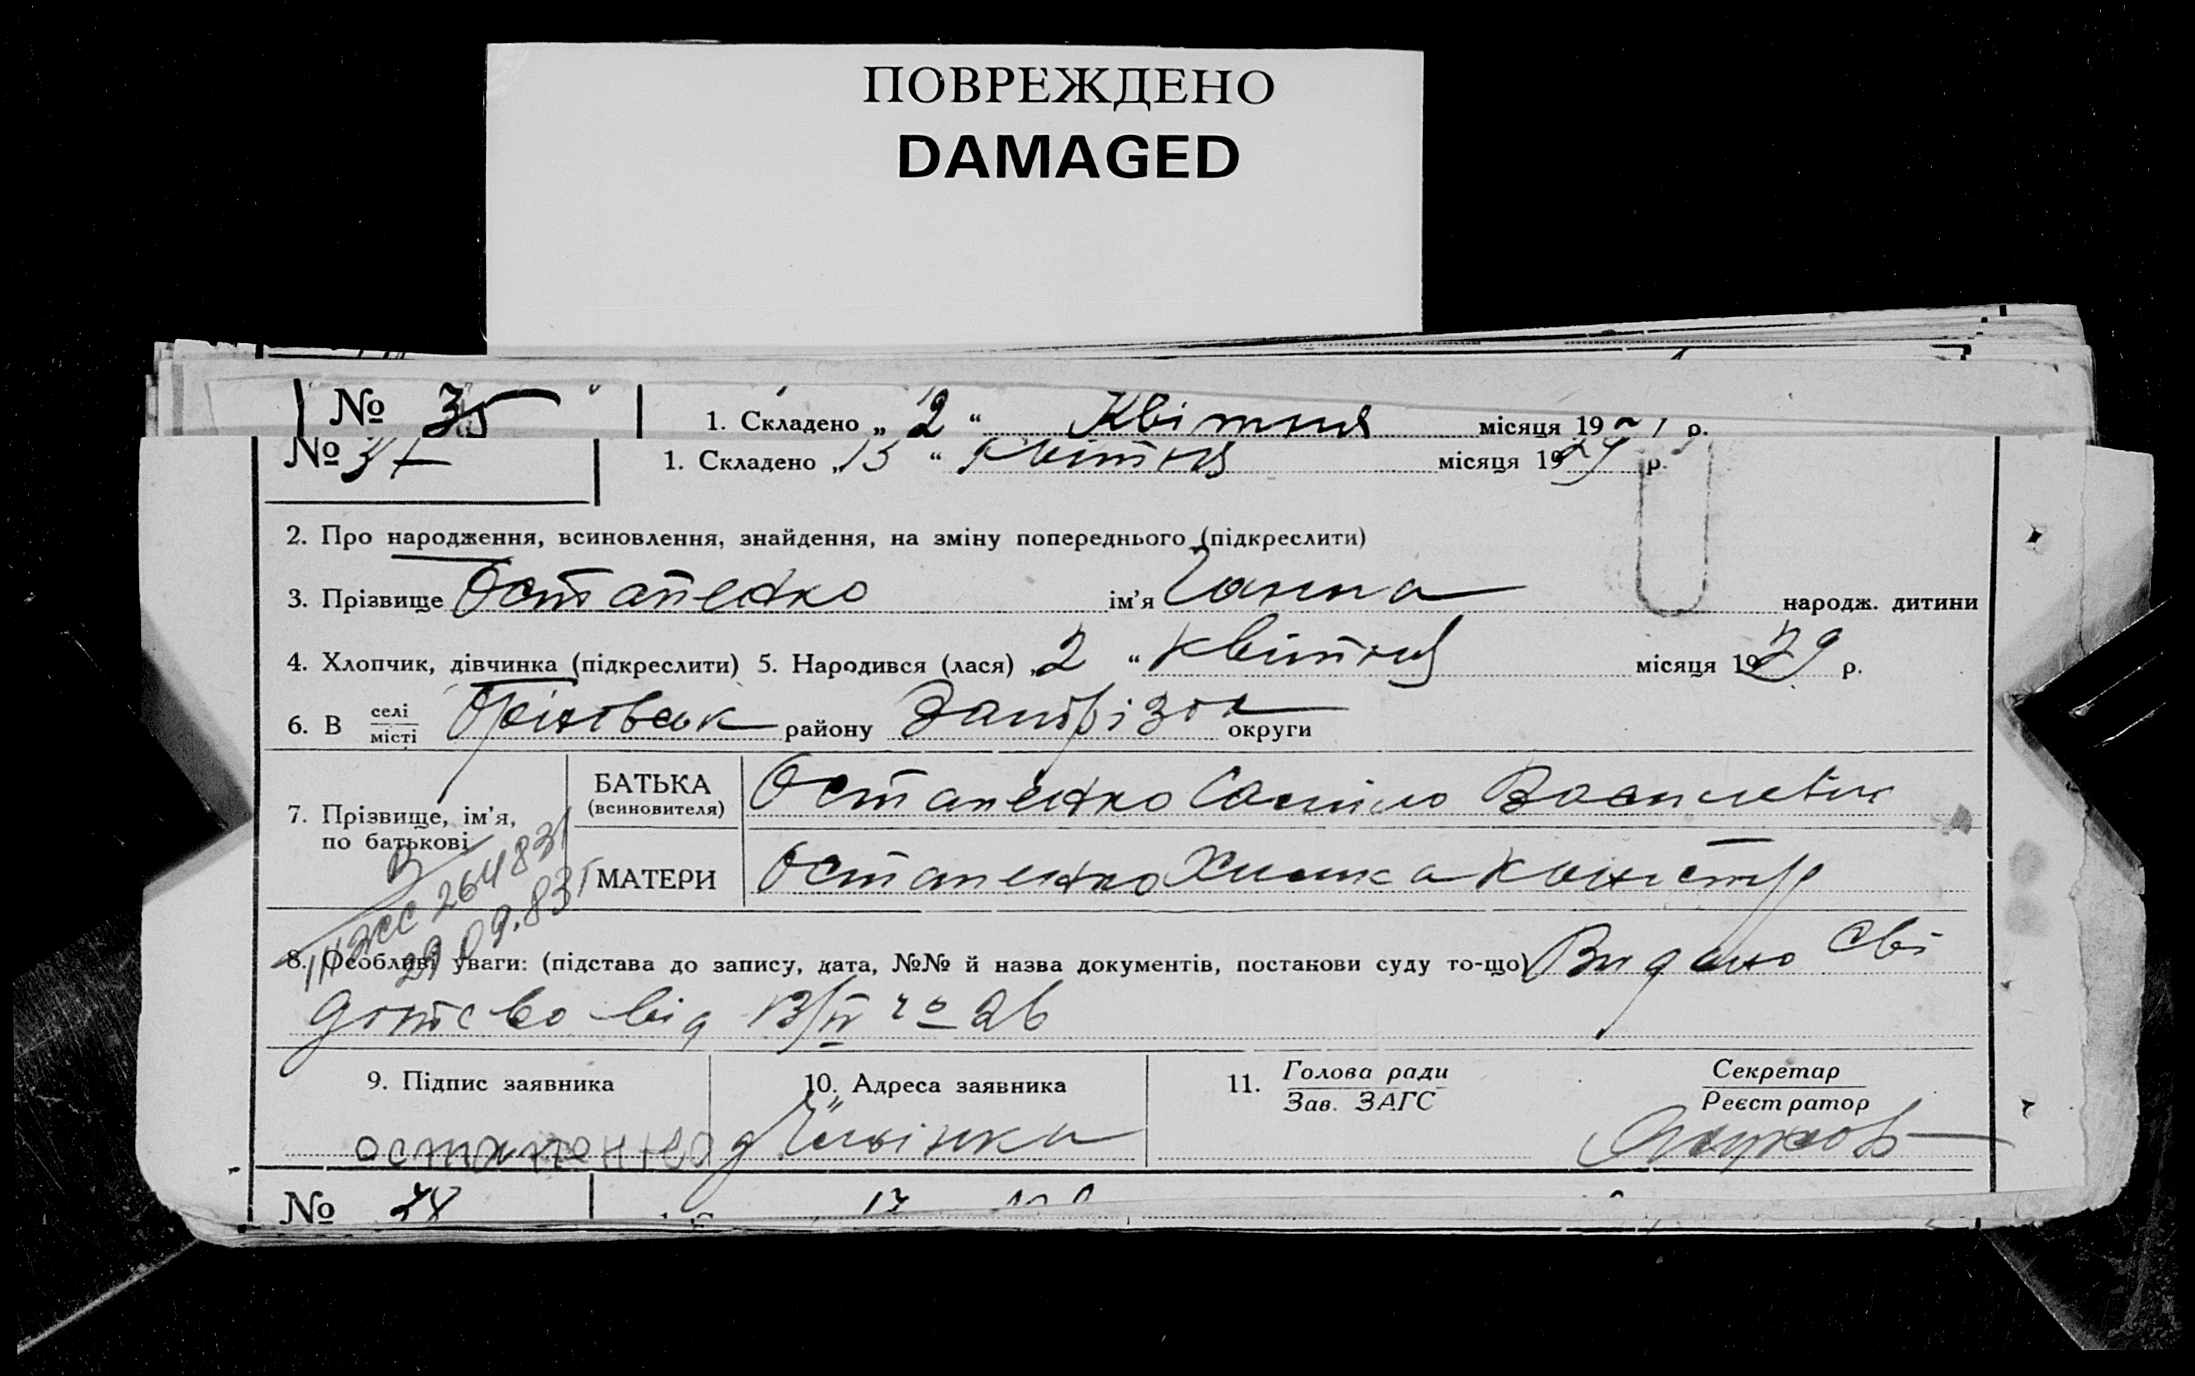 ПОВРЕЖДЕНО
DAMAGED
№ 35 1. Складено „ 2 “ Квітня місяця 19 р.
№ 37 1. Складено „13 “ Квітня місяця 1929 р.
2. Про народження, всиновлення, знайдення, на зміну попереднього (підкреслити)
3. Прізвище Остапенко ім’я Ганна народж. дитини
4. Хлопчик, дівчинка (підкреслити) 5. Народився (лася) „2 “ квітня місяця 1929 р.
6. В селі місті району Запоріз округи
7. Прізвище, ім’я, по батькові
БАТЬКА (всиновителя) Остапенко Василевич
МАТЕРИ Остапенко Химка
264831
29.09.83
8. Особливі уваги: (підстава до запису, дата, №№ й назва документів, постанови суду то-що) Видано Сві
доцтво від 13/IV го 26
9. Підпис заявника 10. Адреса заявника 11. Голова ради Зав. ЗАГС Секретар Реєстратор
остапенко
№ 38